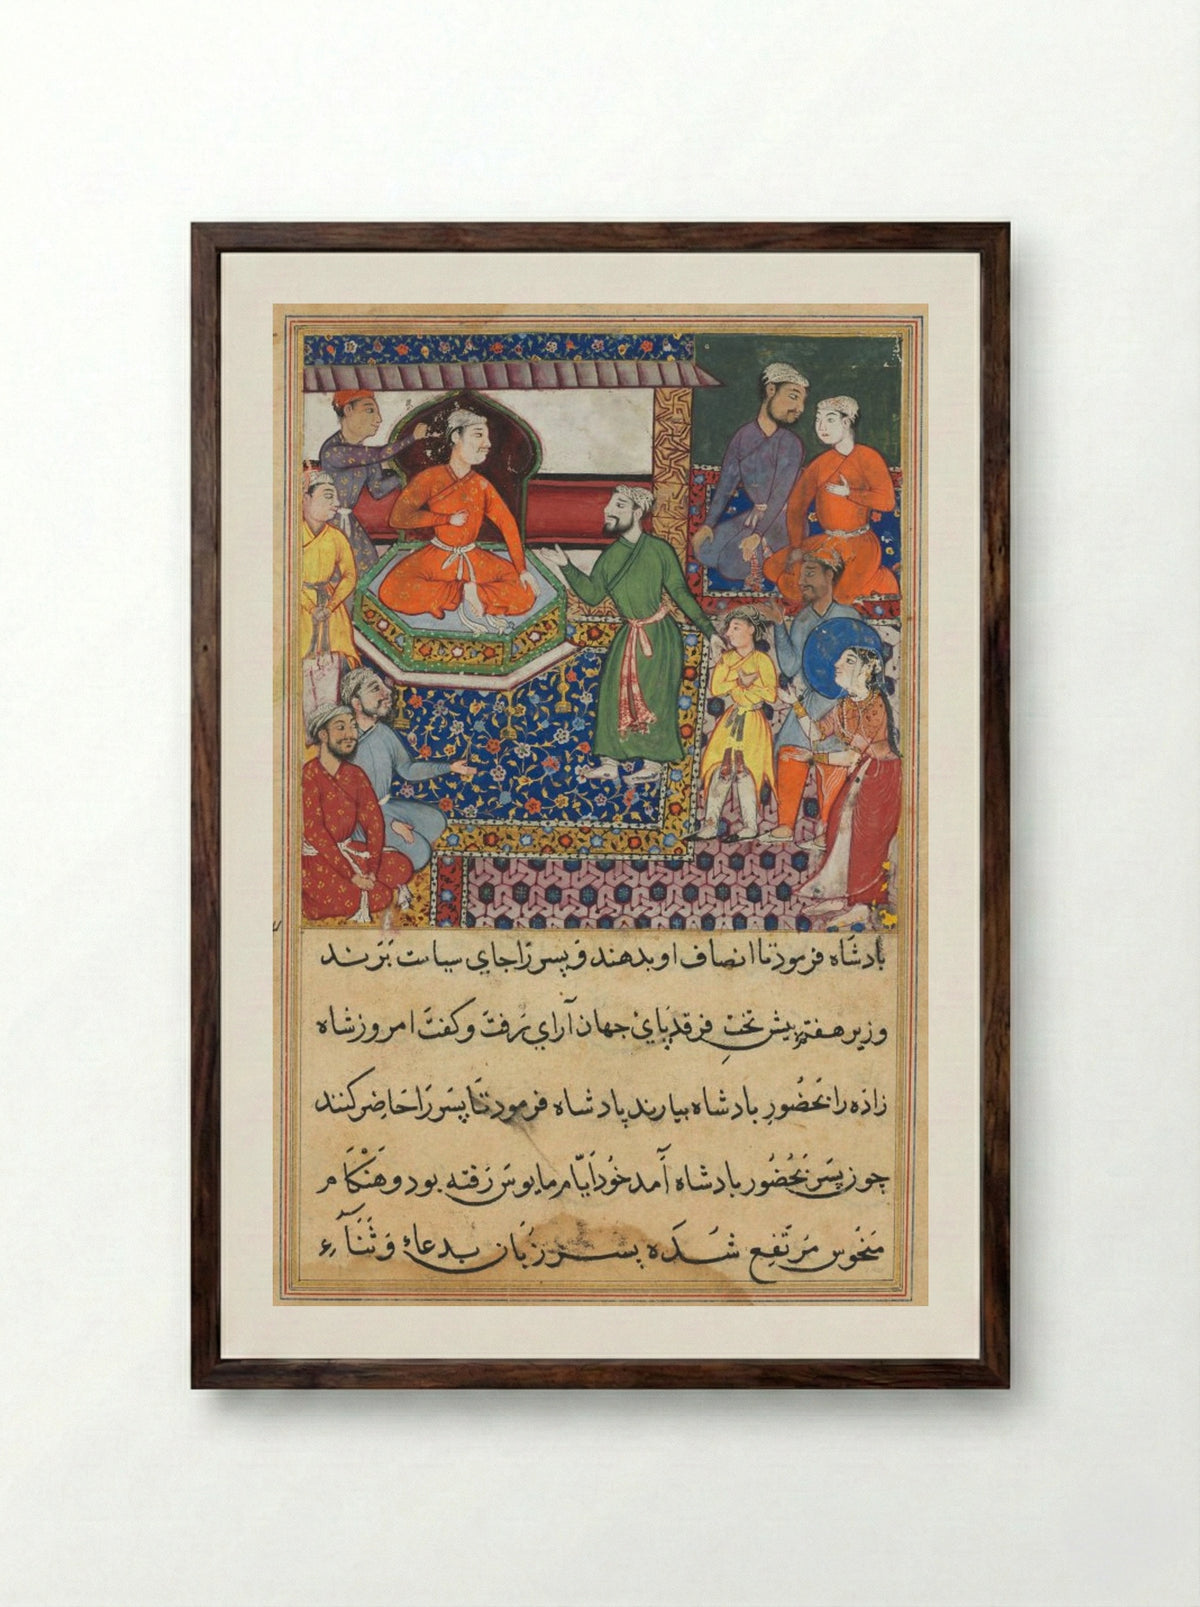 بادشاه فرمود تا انصاف او بدهند و پسر را جاي سياست برند
وزير هفتم پيش تخت فرقد پاي جهان آراي رفت و كفت امروز شاه
زاده را بحضور بادشاه بيارند پادشاه فرمود تا پسر را حاضر كنند
چون پسر بحضور بادشاه آمد خود ايام مايوس رفته بود و هنكام
منحوس مرتفع شده پسر زبان بدعاء و ثناء